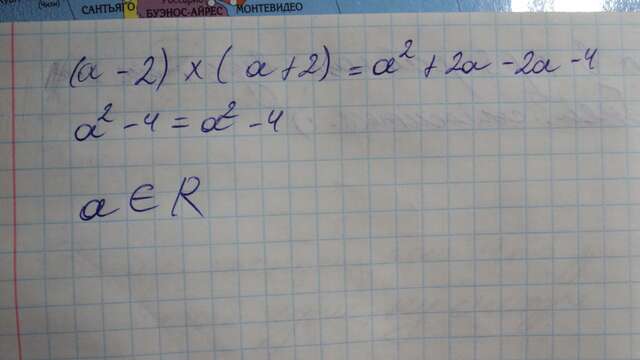 САНТЬЯГО
БУЭНОС-АЙРЕС
МОНТЕВИДЕО
(a - 2) × (a + 2) = a² + 2a - 2a - 4
a² - 4 = a² - 4
a ∈ R